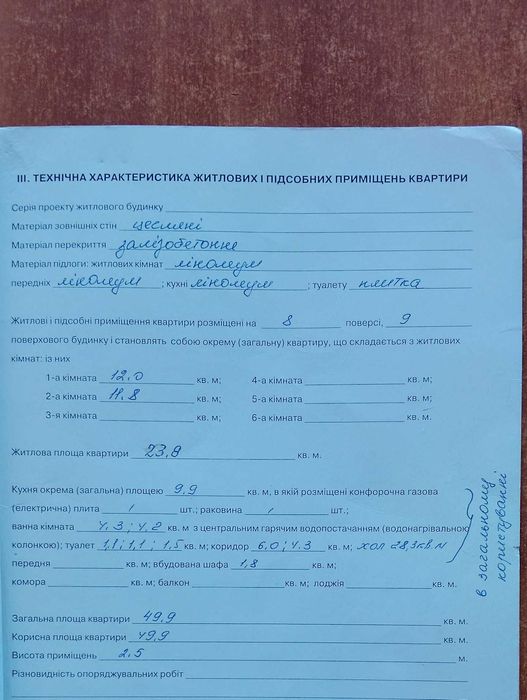 ІІІ. ТЕХНІЧНА ХАРАКТЕРИСТИКА ЖИТЛОВИХ І ПІДСОБНИХ ПРИМІЩЕНЬ КВАРТИРИ
Серія проекту житлового будинку
Матеріал зовнішніх стін цегляні
Матеріал перекриття залізобетонне
Матеріал підлоги: житлових кімнат лінолеум
передніх лінолеум ; кухні лінолеум ; туалету плитка
Житлові і підсобні приміщення квартири розміщені на 8 поверсі, 9
поверхового будинку і становлять собою окрему (загальну) квартиру, що складається з житлових
кімнат: із них
1-а кімната 12,0 кв. м; 4-а кімната кв. м;
2-а кімната 11.8 кв. м; 5-а кімната кв. м;
3-я кімната кв. м; 6-а кімната кв. м.
Житлова площа квартири 23,8 кв. м.
Кухня окрема (загальна) площею 9,9 кв. м, в якій розміщені конфорочна газова
(електрична) плита 1 шт.; раковина 1 шт.;
ванна кімната 4.3; 4.2 кв. м з центральним гарячим водопостачанням (водонагрівальною
колонкою); туалет 1,1; 1,1; 1,5 кв. м; коридор 6,0; 4.3 кв. м; хол 28,3 кв м
передня кв. м; вбудована шафа 1,8 кв. м;
комора кв. м; балкон кв. м; лоджія кв. м.
в загальному
користуванні
Загальна площа квартири 49,9 кв. м.
Корисна площа квартири 49,9 кв. м.
Висота приміщень 2.5 м.
Різновидність опоряджувальних робіт